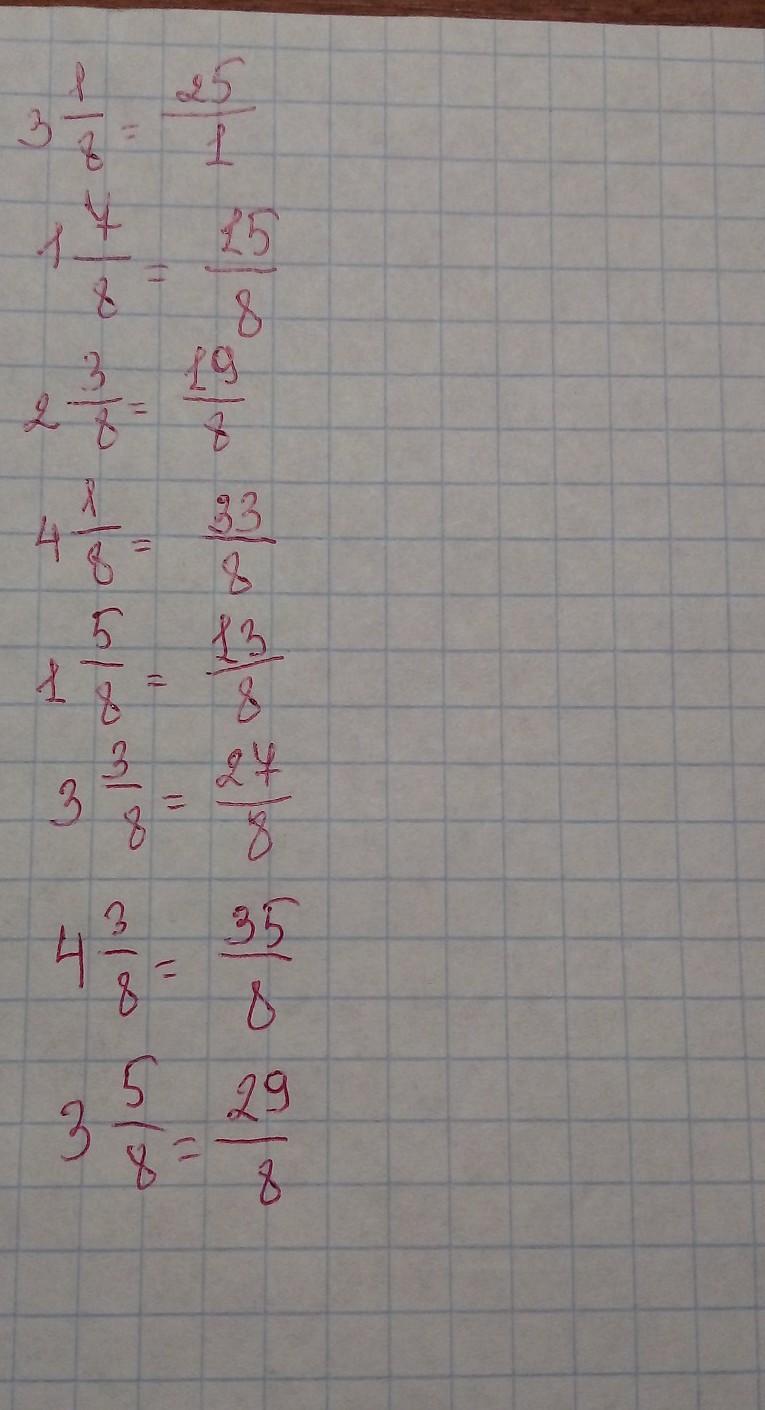 3 1/8 = 25/1
1 7/8 = 15/8
2 3/8 = 19/8
4 1/8 = 33/8
1 5/8 = 13/8
3 3/8 = 27/8
4 3/8 = 35/8
3 5/8 = 29/8